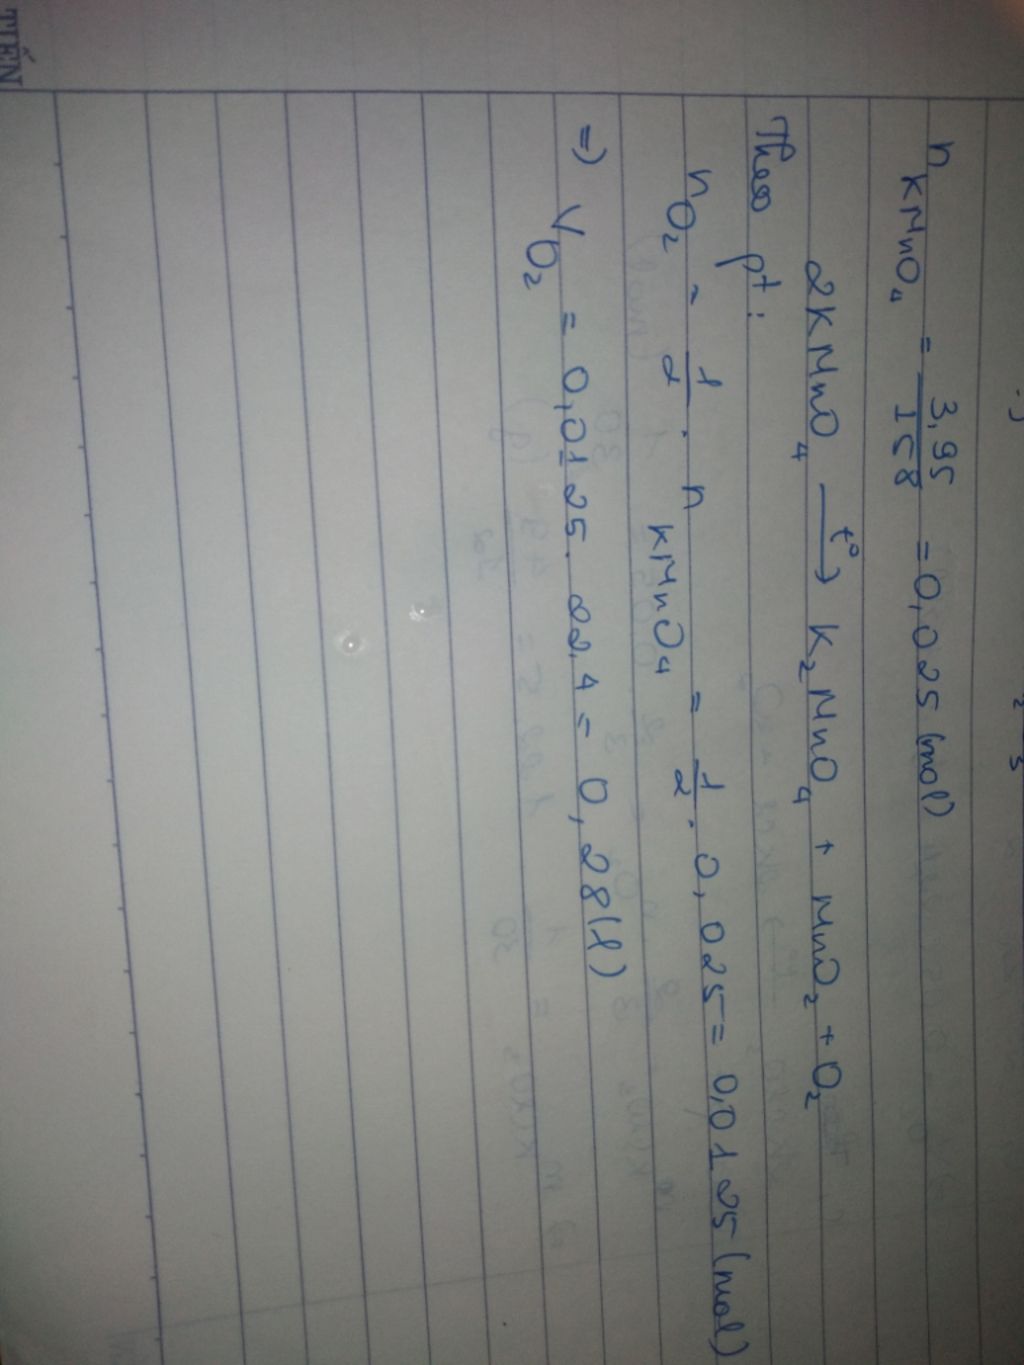 n KMnO₄ = 3,95/158 = 0,025 (mol)
2KMnO₄ —t°→ K₂MnO₄ + MnO₂ + O₂
Theo pt :
n O₂ = 1/2 . n KMnO₄ = 1/2 . 0,025 = 0,0125 (mol)
=) V O₂ = 0,0125. 22,4 = 0,28 (l)